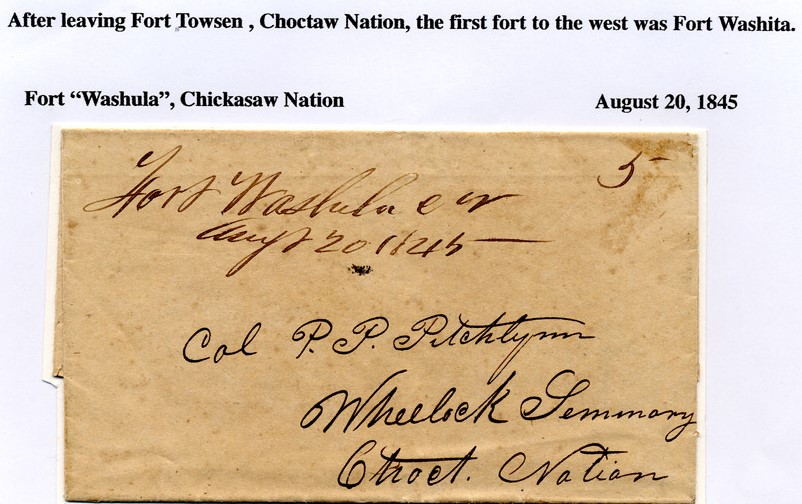 After leaving Fort Towsen , Choctaw Nation, the first fort to the west was Fort Washita.
Fort “Washula”, Chickasaw Nation August 20, 1845
5
Fort Washula C N
Augt 20 1845
Col P. P. Pitchlynn
Wheelock Seminary
Choct. Nation